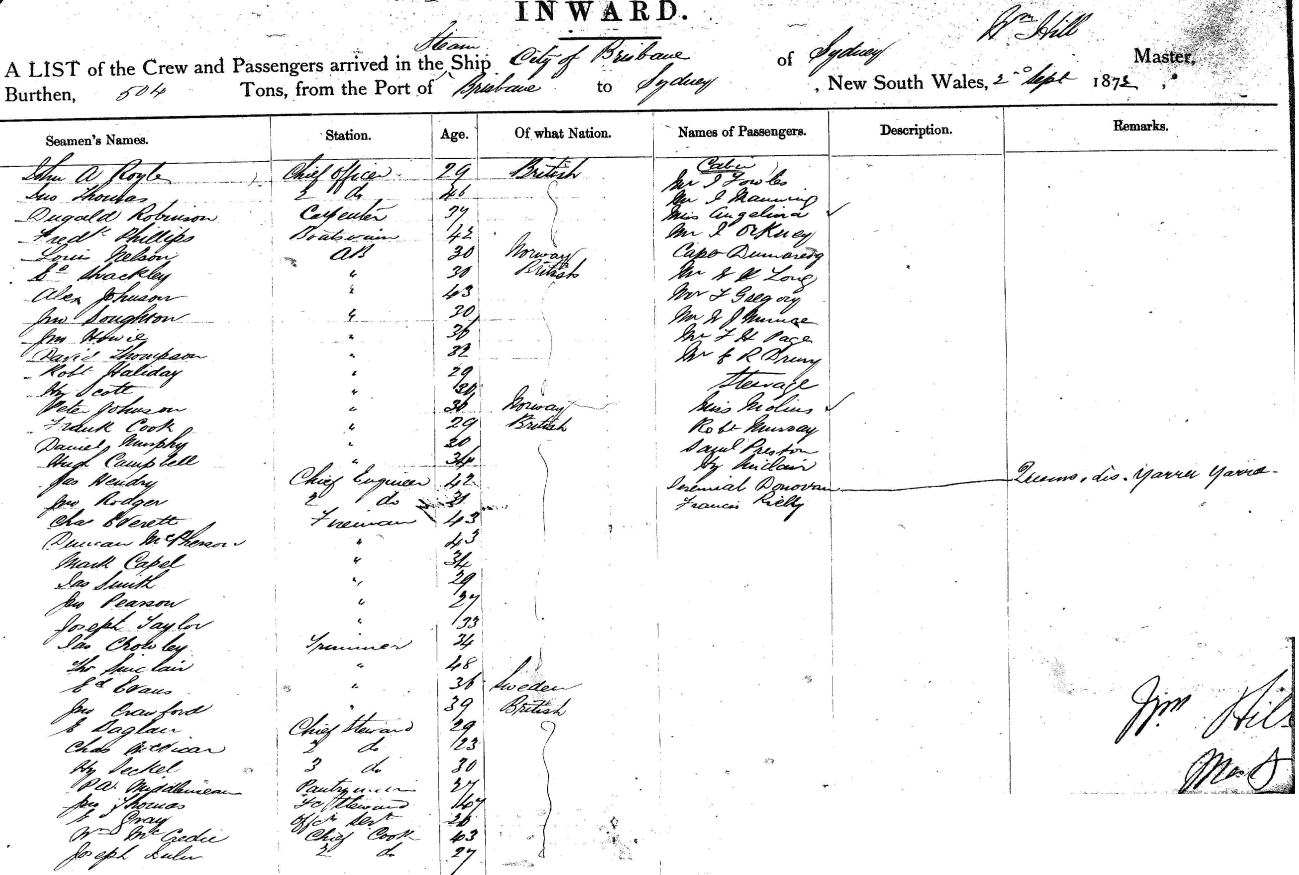 INWARD.
A LIST of the Crew and Passengers arrived in the Steam Ship City of Brisbane of Sydney Wm Hill Master,
Burthen, 504 Tons, from the Port of Brisbane to Sydney, New South Wales, 2nd Sept 1872,
Seamen's Names. Station. Age. Of what Nation. Names of Passengers. Description. Remarks.
Cabin
John A Royle Chief Officer 29 British Mr J Fowles
Jno Thomas 2 do 46 Mr J Manning
Dugald Robinson Carpenter 37 Miss Angelina
Fredk Phillips Boatswain 42 Mr J
Louis Nelson AB 30 Norway Capt Dumaresq
Ed Shackley " 30 British Mr Long
Alex Johnson " 43 Mr F Gregory
Jno Boughton " 30 Mr W J Munce
Jno Howie " 36 Mr F H Page
David Thompson " 32 Mr E R Drury
Robt Haliday " 29 Steerage
Hy Scott " 30
Peter Johnson " 36 Norway Miss Molius
Frank Cook " 29 British Robt Murray
Daniel Murphy " 30 Saml Preston
Hugh Campbell " 34 Hy Sinclair
Jas Hendry Chief Engineer 42 Jeremiah Donovan dis. Yarra Yarra
Jno Rodger 2 do 31 Francis Rielly
Chas Everett Fireman 43
Duncan McPherson " 43
Mark Capel " 34
Jas Smith " 29
Jno Pearson " 27
Joseph Taylor " 33
Jas Crowley Trimmer 34
Thos Sinclair " 48
Ed Evans " 36 Sweden
Jno Crawford " 39 British
E Daglan Chief Steward 29
Chas McVicar 2 do 23
Hy Jeckel 3 do 30
Pantryman 27
Jno Thomas Steward 47
Ed Gray Offrs Sert 26
Wm McCredie Chief Cook 43
Joseph 2 do 27
Wm Hill
Master